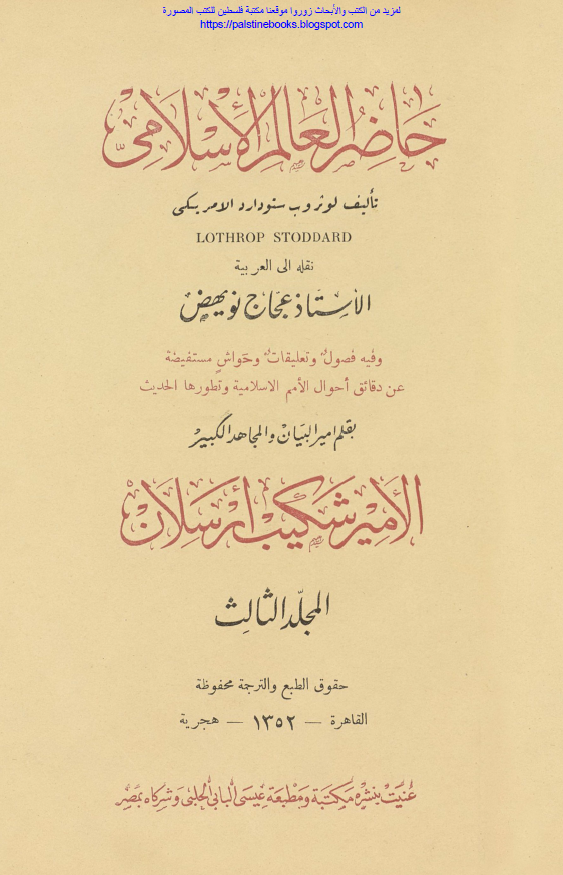 لمزيد من الكتب والأبحاث زوروا موقعنا مكتبة فلسطين للكتب المصورة
https://palstinebooks.blogspot.com
حَاضِرُ العَالَمِ الأِسْلَامِيّ
تأليف لوثروب ستودارد الامريكى
LOTHROP STODDARD
نقله الى العربية
الأسِتَاذ عجَاج نويهض
وفيه فصولٌ وتعليقاتٌ وحَواشٍ مستفيضة
عن دقائق أحوال الأمم الاسلامية وتطورها الحديث
بقلم امير البيَانْ والمجَاهد الكبيرْ
الأميرْ شَكيبْ أرْسِلَانْ
المجلّد الثالِث
حقوق الطبع والترجمة محفوظة
القاهرة — ١٣٥٢ — هجرية
عُنيَتْ بنشْرِه مَكتبَة ومَطبعَة عِيسَى البَابى الحَلبى وَشركاه بمصْر